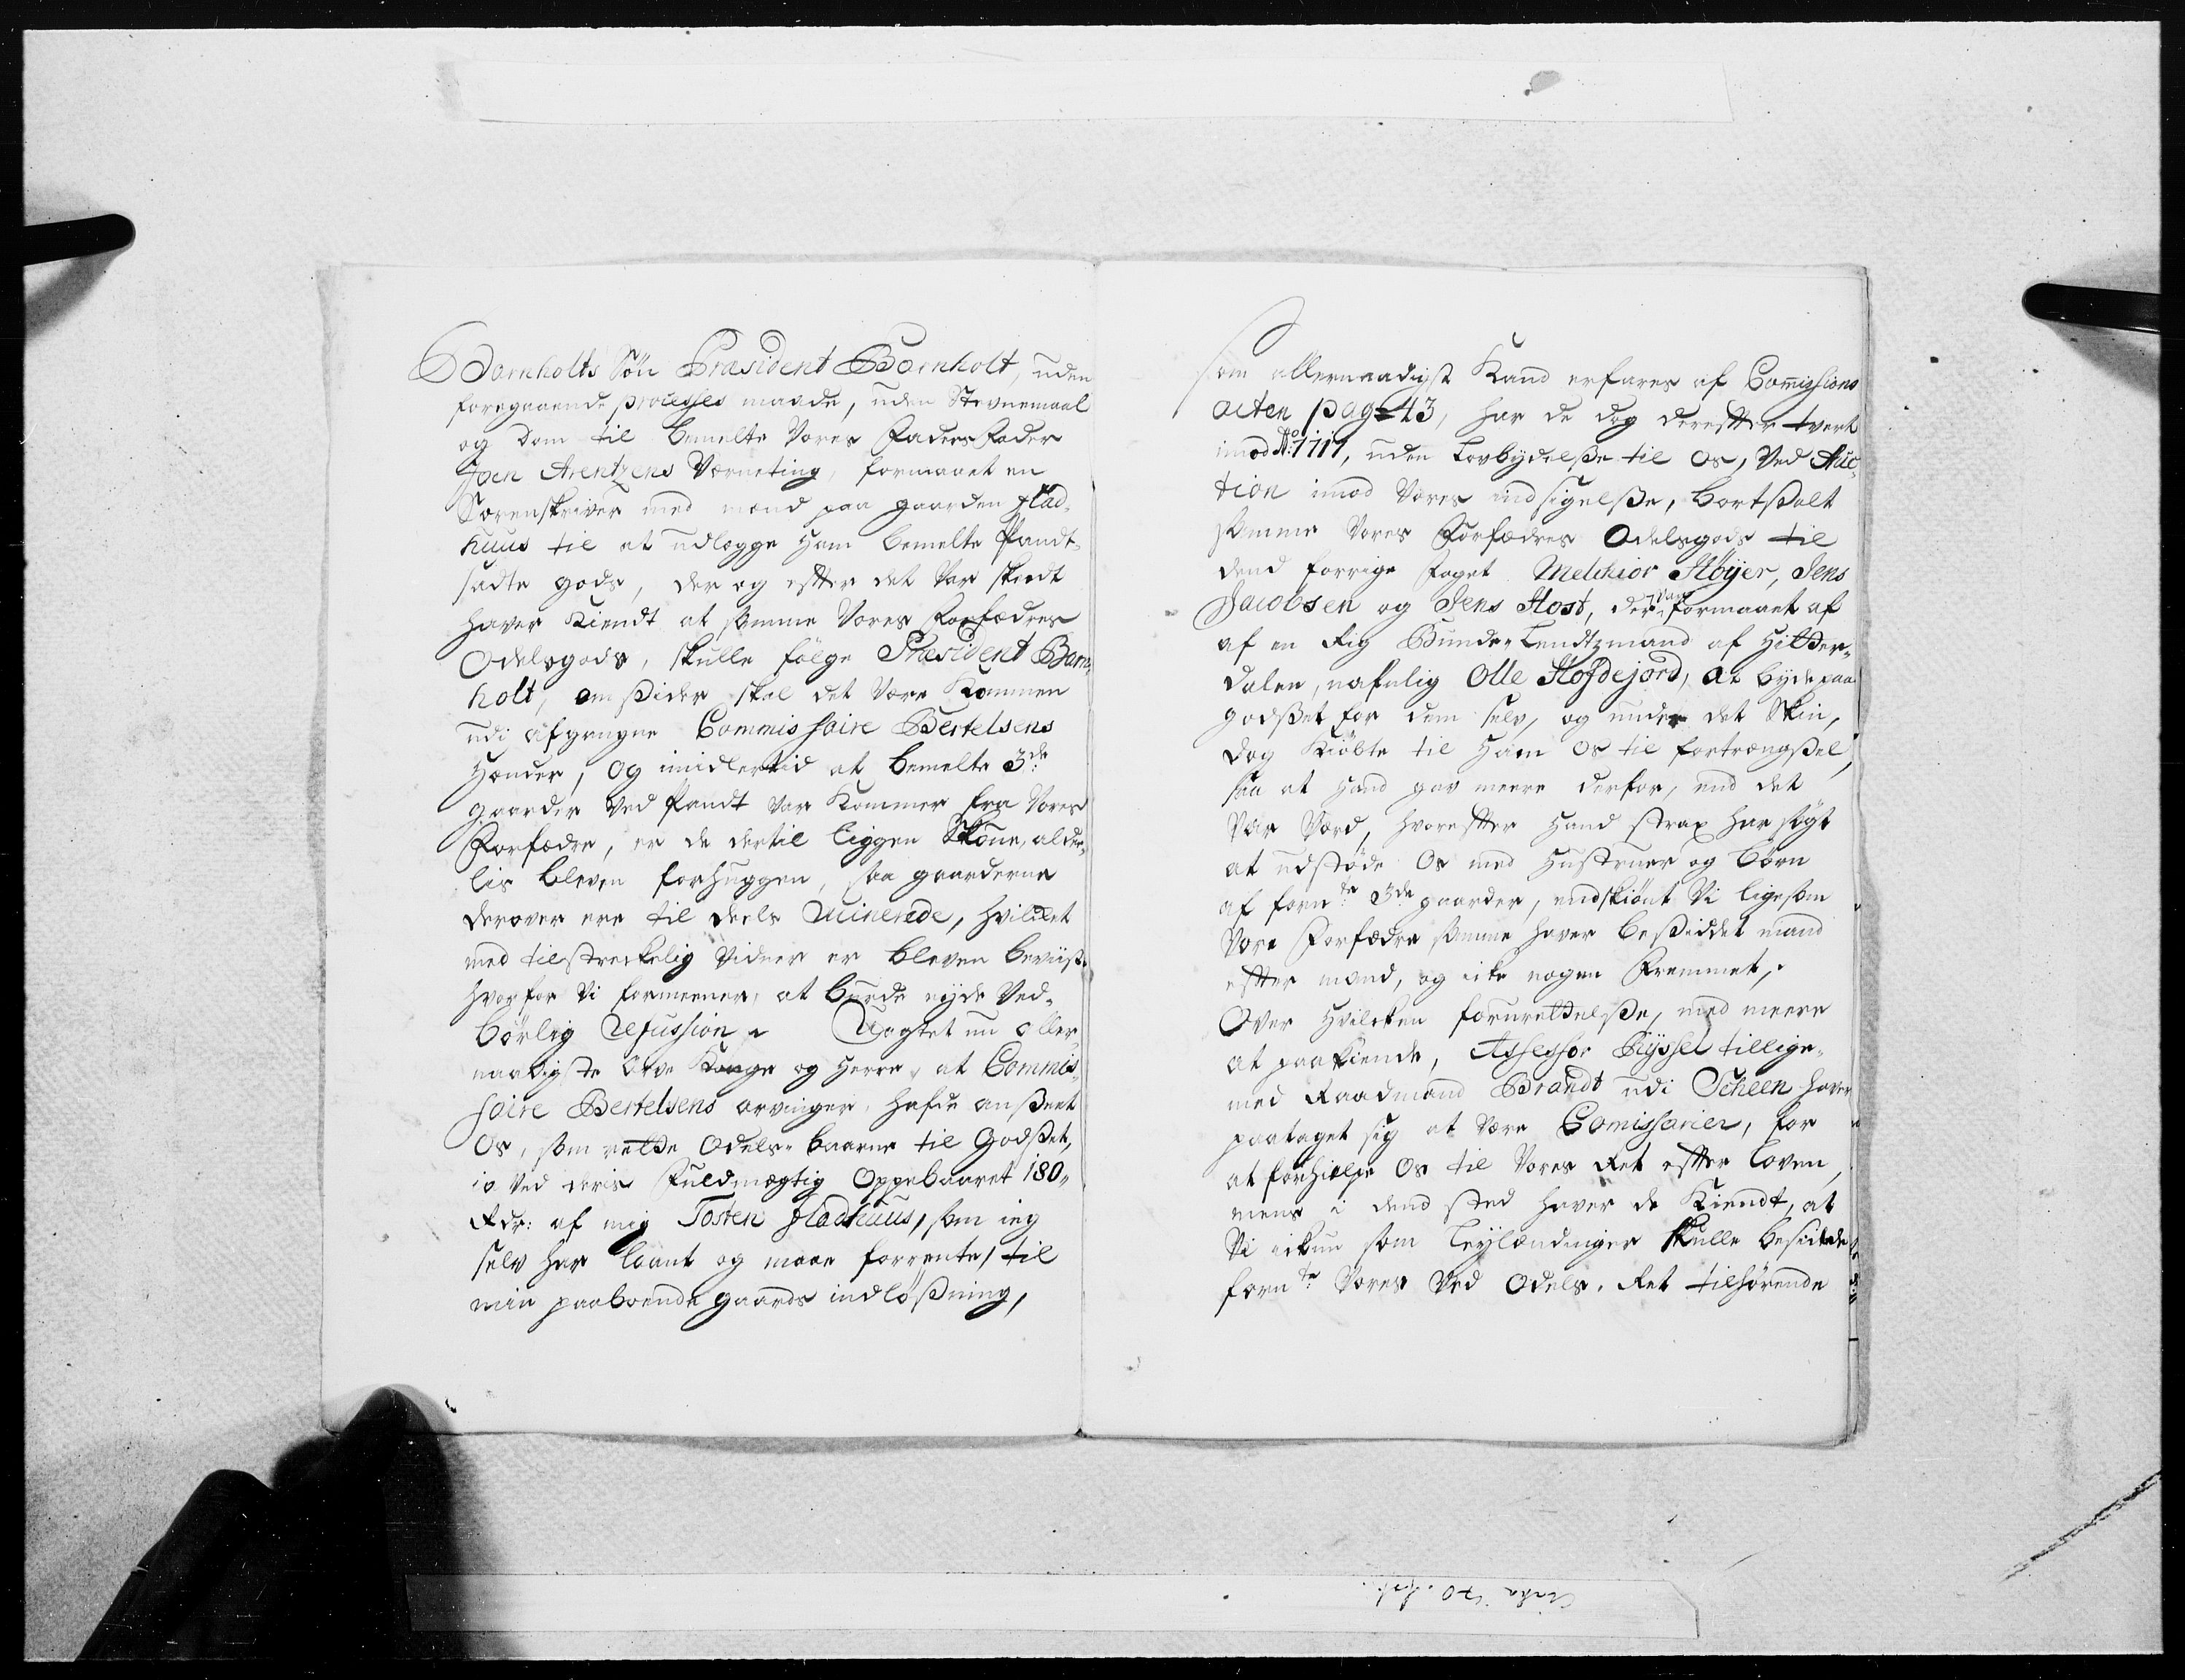 Bornholts Søn Præsident Bornholt, uden
foregaaende processes maade, uden Stevnemaal
og dom til bemelte Vores Faders Fader
Joen Arentzens Værneting, formaaet en
Sorenskriver med mænd paa gaarden Flad-
huus til at udlegge Ham bemelte Pandt-
satte gods, der og efter det Var skeedt
haver Kiendt at samme Vores Forfædres
Odelsgods, skulle følge Præsident Born-
holt, omsider skal det Være Kommen
udi afgangne Commissaire Bertelsens
Hænder, og imidlertid at bemelte 3de
gaarder Ved Pandt var Kommen fra Vores
Forfædre, er de dertil liggen Skoue, alde-
lis bleven forhuggen, saa gaarderne
derover ere til deels Ruinerede, hvilcket
med tilstreckelig Vidner er bleven beviist
hvorfor Vi formeener, at burde nyde Ved-
børlig Refussion. Uagtet nu aller-
naadigste Arve Konge og Herre, at Commis-
saire Bertelsens arvinger, hafde anseet
Os, som rette Odels-baarne til Godset,
io Ved deris Fuldmægtig Oppebaaret 180
Rdr: af mig Tosten Fladhuus, som ieg
selv har laant og maae forrente, til
min paaboende gaards indløsning,
som allernaadigst Kand erfares af Comissions
acten pag= 43, har de dog derefter tvert
imod Ao: 1717, uden Lovbydelse til Os, Ved Auc-
tion imod Vores indsigelse, bortsolt
samme Vores Forfædres Odelsgods til
dend forrige Foget Melchior Høyer, Jens
Jacobsen og Jens Host, der Var formaaet af
af en Rig Bunde-Lendtzmand af Hitter-
dalen, nafnlig Olle Hofdejord, at byde paa
godset for dem selv, og under det Skin,
dog Kiøbte til Ham Os til fortrængsel,
saa at Hand gav meere derfor, end det
Var Værd, hvorefter Hand strax har søgt
at udstøde Os med Hustruer og børn
af fornte 3de gaarder, endskiønt Vi ligesom
Vore Forfædre samme haver besiddet mand
efter mand, og icke nogen Fremmet,
Over Hvilcken forurettelse, med meere
at paakiende, Assessor Ryssel tillige-
med Raadmand Brandt udi Scheen haver
paataget sig at være Comissarier, for
at forhielpe Os til Vores Ret efter Loven,
mens i dend sted haver de Kiendt, at
Vi ickun som Leylændinger skulle besidde
fornte Vores Ved Odels-Ret tilhørende